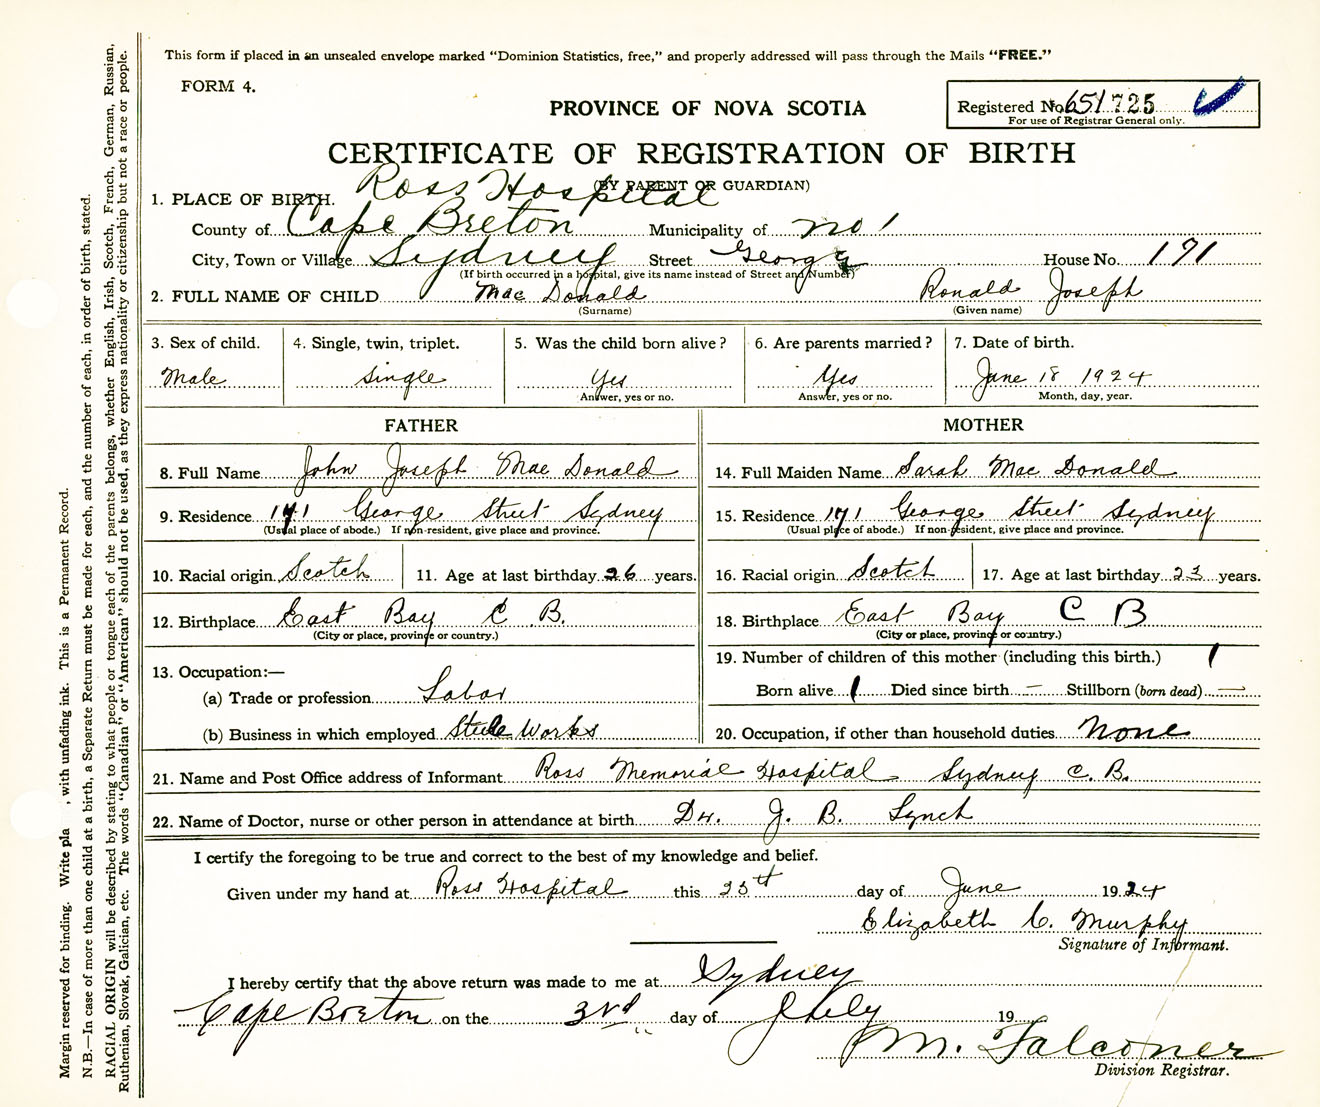 This form if placed in an unsealed envelope marked "Dominion Statistics, free," and properly addressed will pass through the Mails "FREE."
FORM 4.
Registered No. 651725
For use of Registrar General only.
PROVINCE OF NOVA SCOTIA
CERTIFICATE OF REGISTRATION OF BIRTH
(BY PARENT OR GUARDIAN)
1. PLACE OF BIRTH. Ross Hospital
County of Cape Breton Municipality of No 1
City, Town or Village Sydney Street George House No. 171
(If birth occurred in a hospital, give its name instead of Street and Number)
2. FULL NAME OF CHILD Mac Donald Ronald Joseph
(Surname) (Given name)
3. Sex of child. 4. Single, twin, triplet. 5. Was the child born alive? 6. Are parents married? 7. Date of birth.
Male single Yes Yes June 18 1924
Answer, yes or no. Answer, yes or no. Month, day, year.
FATHER MOTHER
8. Full Name John Joseph Mac Donald 14. Full Maiden Name Sarah Mac Donald
9. Residence 171 George Street Sydney 15. Residence 171 George Street Sydney
(Usual place of abode.) If non-resident, give place and province. (Usual place of abode.) If non-resident, give place and province.
10. Racial origin Scotch 11. Age at last birthday 26 years. 16. Racial origin Scotch 17. Age at last birthday 23 years.
12. Birthplace East Bay C B. 18. Birthplace East Bay C B
(City or place, province or country.) (City or place, province or country.)
13. Occupation:— 19. Number of children of this mother (including this birth.) 1
(a) Trade or profession Labor Born alive 1 Died since birth — Stillborn (born dead) —
(b) Business in which employed Steele Works 20. Occupation, if other than household duties None
21. Name and Post Office address of Informant Ross Memorial Hospital Sydney C. B.
22. Name of Doctor, nurse or other person in attendance at birth Dr. J. B. Lynch
I certify the foregoing to be true and correct to the best of my knowledge and belief.
Given under my hand at Ross Hospital this 25th day of June 1924
Elizabeth C. Murphy
Signature of Informant.
I hereby certify that the above return was made to me at Sydney
Cape Breton on the 3rd day of July 19
M. Falconer
Division Registrar.
Margin reserved for binding. Write pla , with unfading ink. This is a Permanent Record.
N.B.—In case of more than one child at a birth, a Separate Return must be made for each, and the number of each, in order of birth, stated.
RACIAL ORIGIN will be described by stating to what people or tongue each of the parents belongs, whether English, Irish, Scotch, French, German, Russian,
Ruthenian, Slovak, Galician, etc. The words "Canadian" or "American" should not be used, as they express nationality or citizenship but not a race or people.